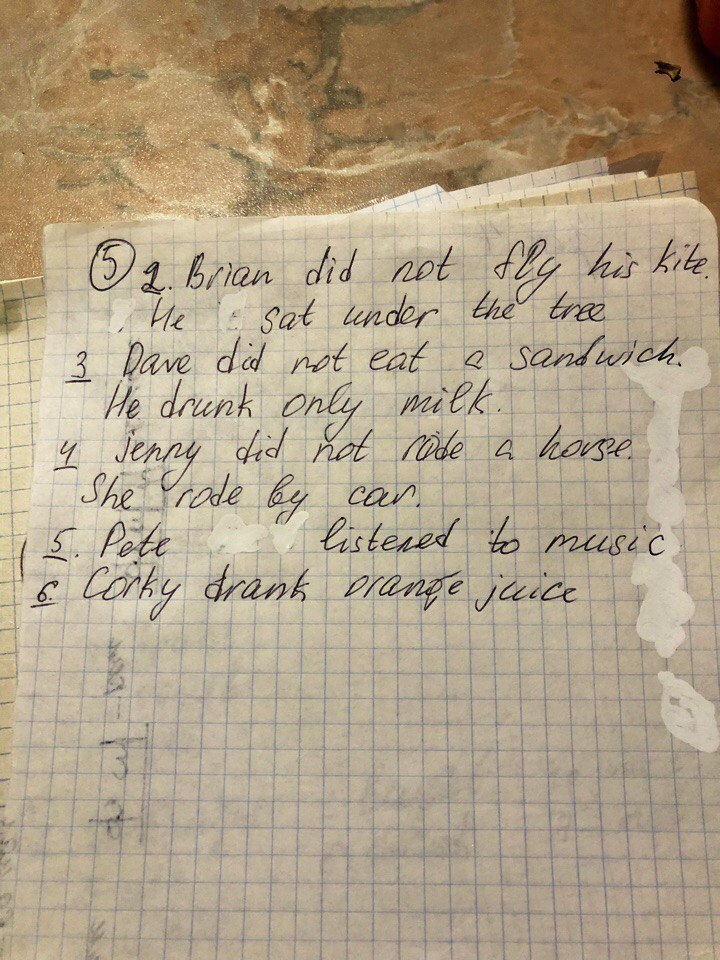 5 2. Brian did not fly his kite.
He sat under the tree
3 Dave did not eat a sandwich.
He drunk only milk.
4 Jenny did not rode a horse.
She rode by car.
5. Pete listened to music
6. Corky drank orange juice